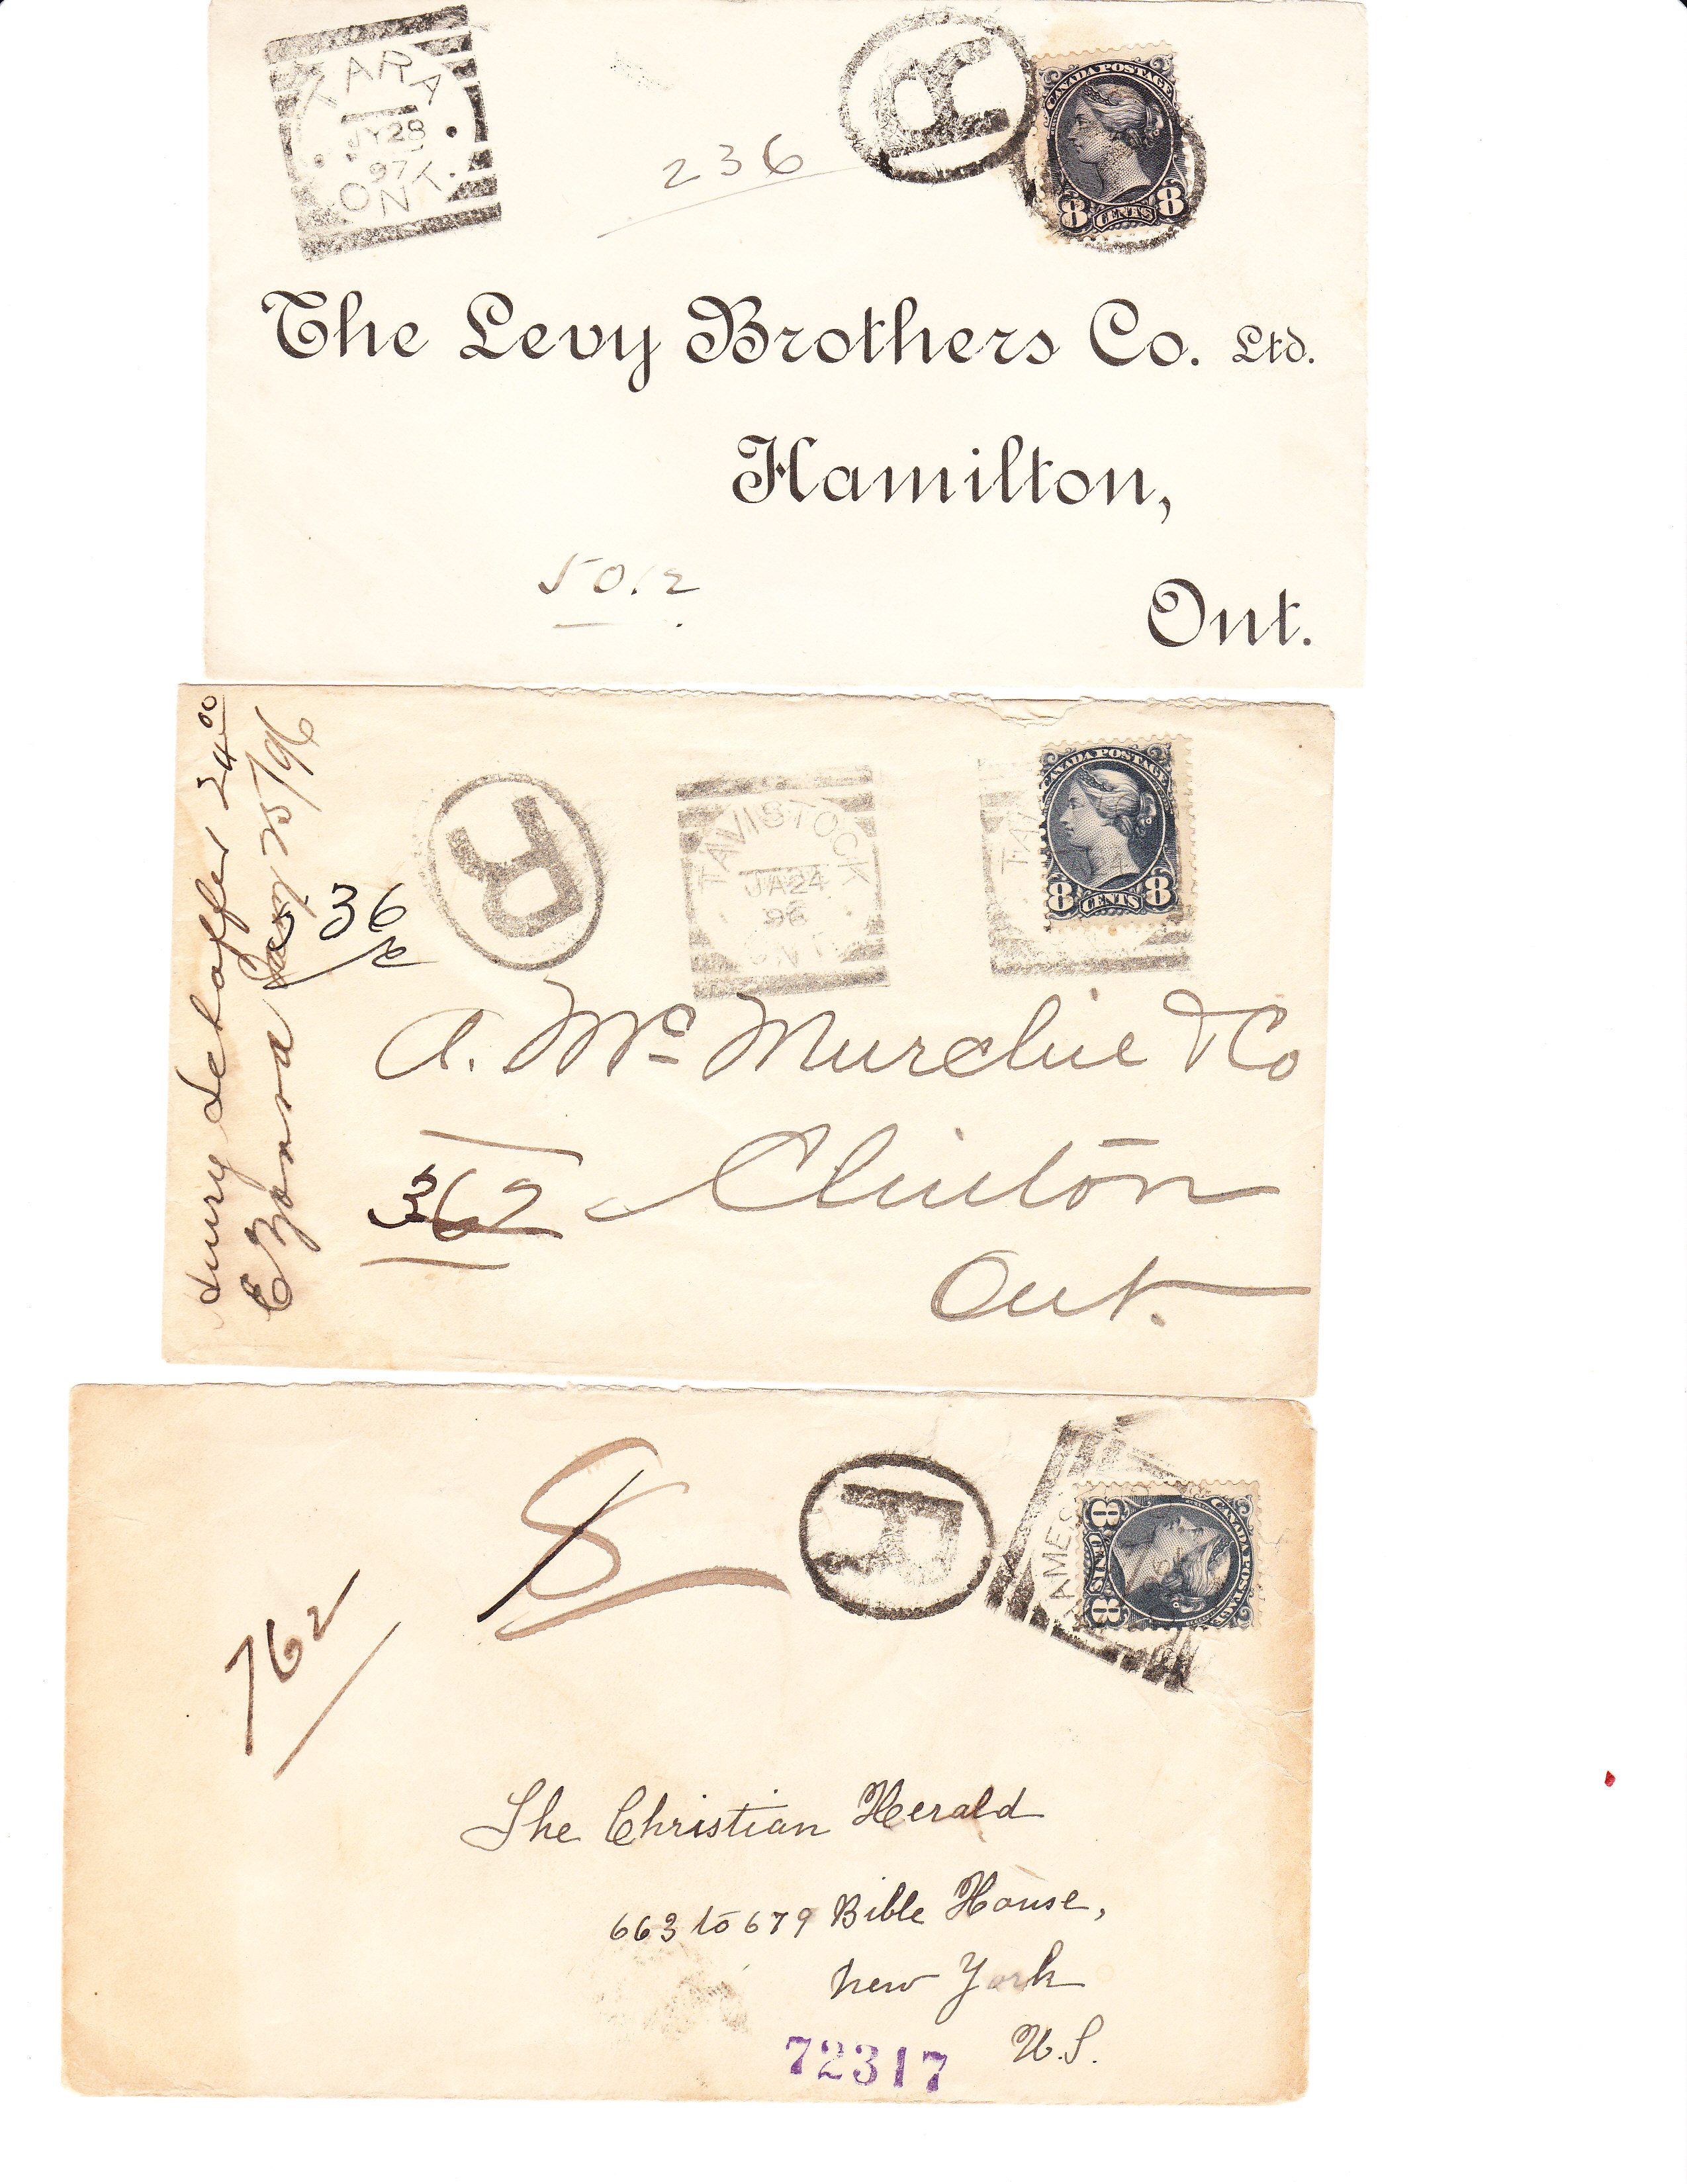 TARA
JY 28
97
ONT.
R
CANADA POSTAGE
8 CENTS 8
236
The Levy Brothers Co. Ltd.
Hamilton,
50.2
Ont.
24 00
E Zorra Jany 25/96
36
R
TAVISTOCK
JA 24
96
ONT
TAV
CANADA POSTAGE
8 CENTS 8
A. McMurchie & Co
362
Clinton
Ont.
8
R
AMES
CANADA POSTAGE
8 CENTS 8
762
The Christian Herald
663 to 679 Bible House,
New York
U.S.
72317